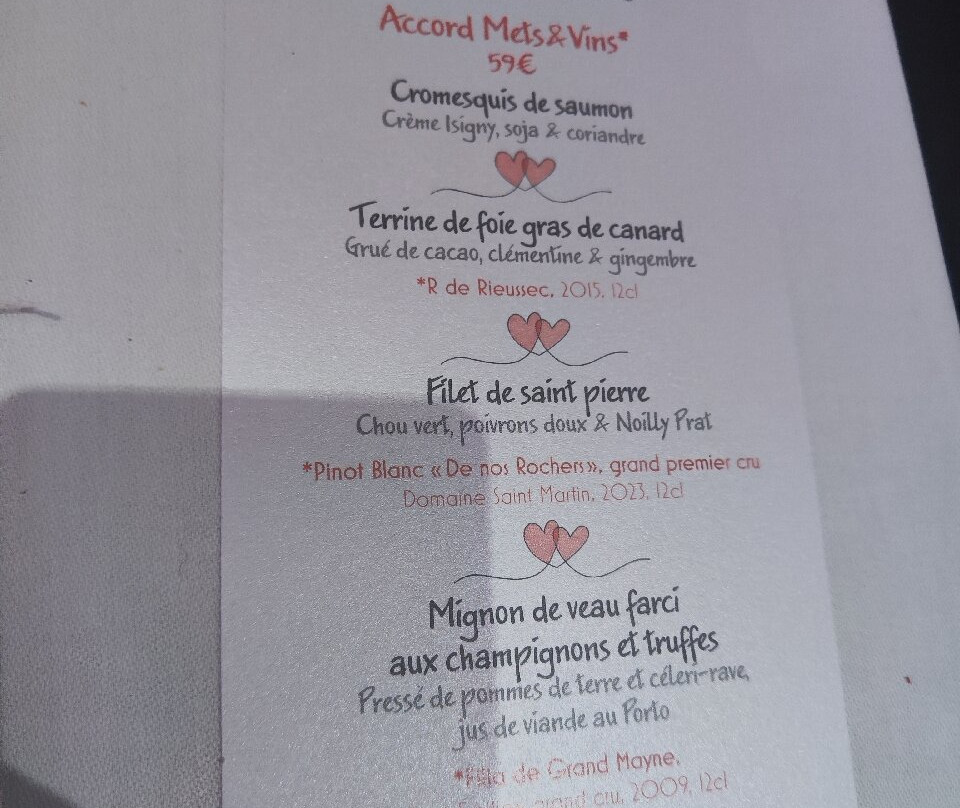 Accord Mets & Vins*
59€
Cromesquis de saumon
Crème Isigny, soja & coriandre
Terrine de foie gras de canard
Grué de cacao, clémentine & gingembre
*R de Rieussec, 2015, 12cl
Filet de saint pierre
Chou vert, poivrons doux & Noilly Prat
*Pinot Blanc « De nos Rochers», grand premier cru
Domaine Saint Martin, 2023, 12cl
Mignon de veau farci
aux champignons et truffes
Pressé de pommes de terre et céleri-rave,
jus de viande au Porto
de Grand Mayne,
grand cru, 2009, 12cl